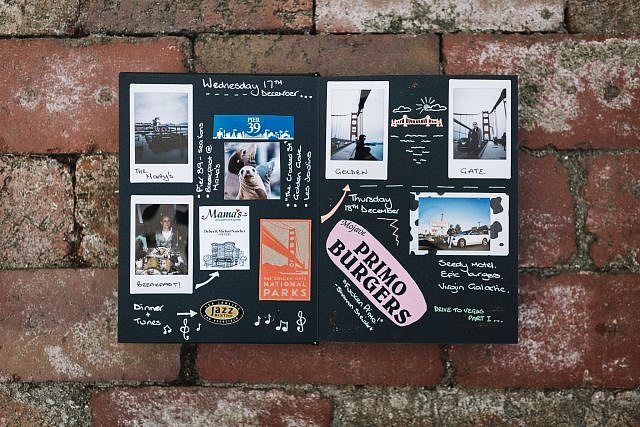 Wednesday 17TH
December...
PIER
39
• Pier 39 - Sea lions
• Breakfast @
Mama's
• "The Crooked St"
• Golden Gate
• Las
THE
Marty's
Mama's
BREAKFAST!
THE GOLDEN GATE
NATIONAL
PARKS
Dinner
+
Tunes
Jazz
GOLDEN
GATE
Thursday
18TH December
Mojave
PRIMO
BURGERS
Seedy Motel.
Epic burgers.
Virgin Galactic.
DRIVE TO VEGAS
PART I...